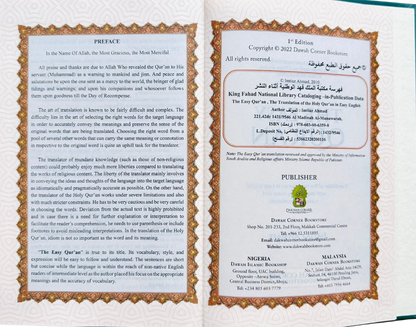 PREFACE
In the Name Of Allah, the Most Gracious, the Most Merciful
All praise and thanks are due to Allah Who revealed the Qur'an to His
servant (Muhammad) as a warning to mankind and jinn. And peace and
salutation be upon the one sent as a mercy to the world, the bringer of glad
tidings and warnings; and upon his companions and whomsoever follows
them upon goodness till the Day of Recompense.
The art of translation is known to be fairly difficult and complex. The
difficulty lies in the art of selecting the right words for the target language
in order to accurately convey the meanings and preserve the sense of the
original words that are being translated. Choosing the right word from a
pool of several other words that can carry the same meaning or connotation
in respective to the original word is quite an uphill task for the translator.
The translator of mundane knowledge (such as those of non-religious
content) could probably enjoy much more liberties compared to translating
the works of religious content. The liberty of the translator mainly involves
in conveying the ideas and thoughts of the language into the target language
as idiomatically and pragmatically accurate as possible. On the other hand,
the translator of the Holy Qur'an works under severe limitations and also
with much stricter constraints. He has to be very cautious and be very careful
in choosing the words. Deviation from the actual text is highly prohibited
and in case there is a need for further explanation or interpretation to
facilitate the reader's comprehension, he needs to use parenthesis or include
footnotes to avoid misleading interpretations. In the translation of the Holy
Qur'an, idiom is not so important as the word and its meaning.
"The Easy Qur'an" is true to its title. Its vocabulary, style, and
expression will be easy to follow and understand. The sentences are short
but concise while the language is within the reach of non-native English
readers of intermediate level as the author placed his focus on the appropriate
meanings and the accuracy of vocabulary.
1st Edition
Copyright © 2022 Dawah Corner Bookstores
All rights reserved.
جميع حقوق الطبع محفوظة ©
© Imtiaz Ahmad, 2010
فهرسة مكتبة الملك فهد الوطنية أثناء النشر
King Fahad National Library Cataloging -in-Publication Data
The Easy Qur'an, The Translation of the Holy Qur'an in Easy English
Author Imtiaz Ahmad
Note: The Easy Qur'an translation reviewed and approved by the Ministry of Information
Saudi Arabia and Religious affairs Ministry Islamic Republic of Pakistan.
PUBLISHER
DAWAH CORNER BOOKSTORE
NIGERIA
DAWAH ISLAMIC BOOKSHOP
Ground floor, UAC building,
MALAYSIA
DAWAH CORNER BOOKSTORE